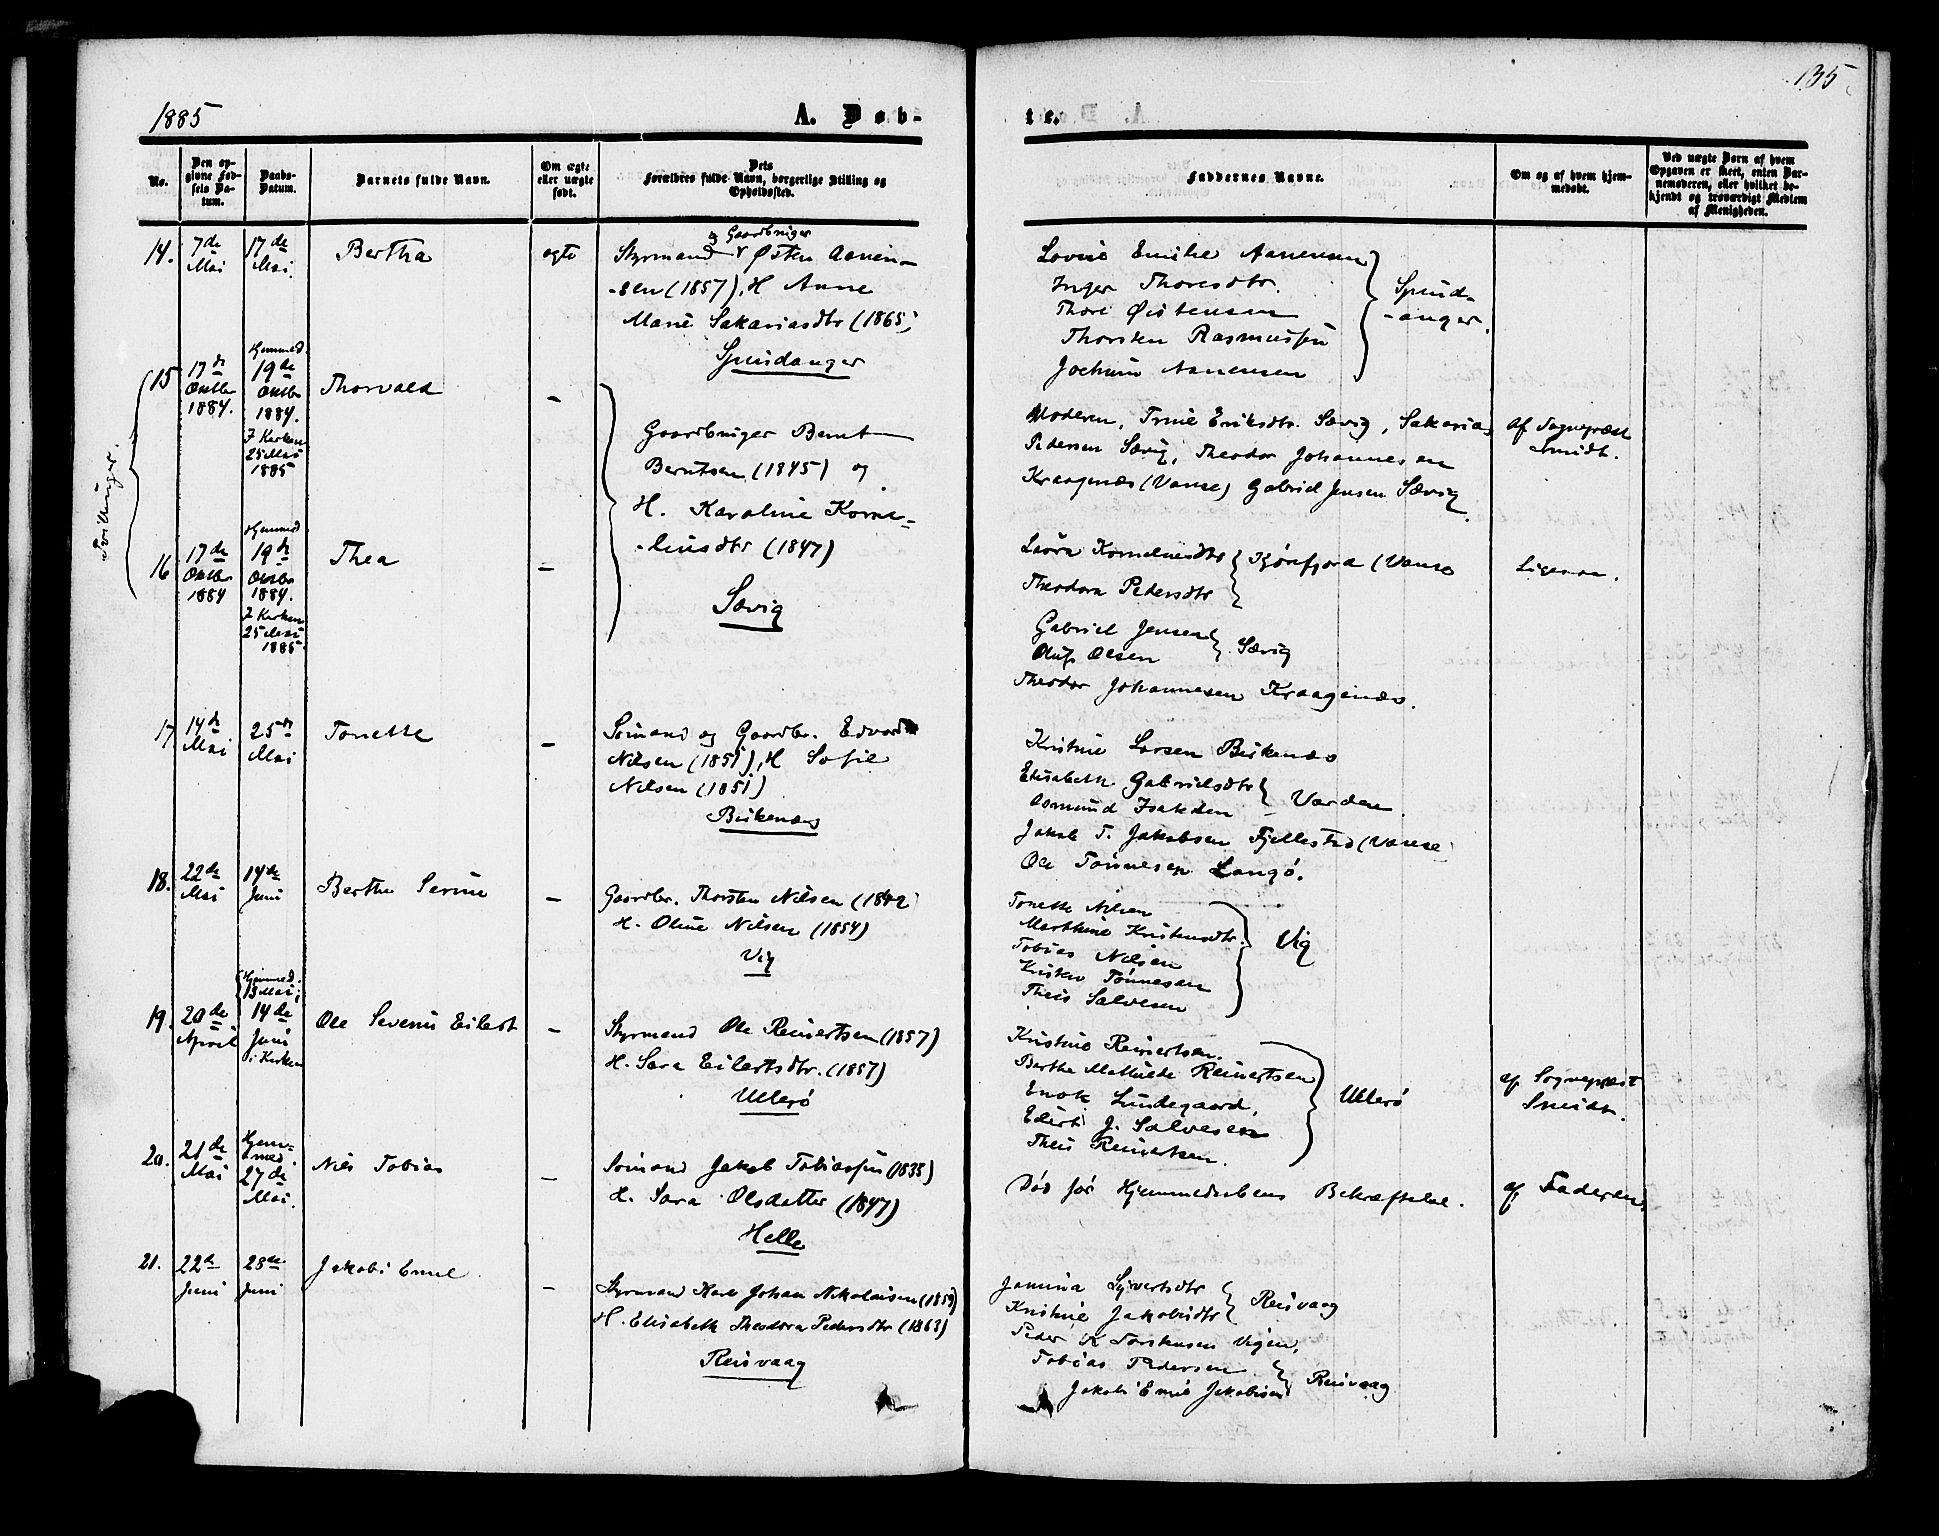 1885
A. Døb-
te.
135
No.
Den op-
givne Fød-
sels Da-
tum.
Daabs-
Datum.
Barnets fulde Navn.
Om ægte
eller uægte
født.
Dets
Forældres fulde Navn, borgerlige Stilling og
Opholdssted.
Faddernes Navne.
Om og af hvem hjem-
medøbt.
Ved uægte Børn af hvem
Opgaven er skeet, enten Bar-
nemoderen, eller hvilket be-
kjendt og troværdigt Medlem
af Menigheden.
14.
7de
Mai
17de
Mai.
Bertha
ægte
og Gaardbruger
Styrmand Østen Aanen-
sen (1857), H Anne
Marie Sakariasdtr (1865)
Spindanger
Lovise Emilie Aanensen
Inger Thoresdtr.
Thore Øistensen
Thorsten Rasmussen
Jochum Aanensen
Spind-
-anger.
Tvillinger.
15
17de
Oktbr
1884.
Hjemmed.
19de
Oktbr
1884.
I Kirken
25 Mai
1885
Thorvald
-
Gaardbruger Bernt
Berntsen (1845) og
H. Karoline Korne-
-liusdtr (1847)
Sævig
Moderen, Trine Eriksdtr. Sævig, Sakarias
Pedersen Sævig, Theodor Johannesen
Kraagenæs (Vanse) Gabriel Jensen Sævig.
Af Sognepræst
Smidt.
16
17de
Oktbr
1884
Hjemmed
19de
Oktbr
1884.
I Kirken
25 Mai
1885.
Thea
-
Laura Korneliusdtr
Theodora Pedersdtr
Kjørefjord (Vanse
Gabriel Jensen
Oluf Olsen
Sævig
Theodor Johannesen Kraagenæs.
Ligesaa.
17
14de
Mai
25de
Mai
Tonette
-
Sømand og Gaardbr. Edvard
Nilsen (1851), H Sofie
Nilsen (1851)
Birkenæs
Kristine Larsen Birkenæs
Elisabeth Gabrielsdtr
Osmund Isaksen
Varden
Jakob T. Jakobsen Fjellestad (Vanse
Ole Tønnesen Langø.
18.
22de
Mai
14de
Juni
Berthe Serine
-
Gaardbr. Thorsten Nilsen (1842)
H. Oline Nilsen (1854)
Vig
Tonette Nilsen
Marthine Kristensdtr.
Tobias Nilsen
Kristen Tønnesen
Theis Salvesen
Vig
19.
20de
April
Hjemmed.
13 Mai;
14de
Juni
i Kirken
Ole Severin Eilert
-
Styrmand Ole Reinertsen (1857)
H. Sara Eilertsdtr. (1857)
Ullerø
Kristine Reinertsen.
Berthe Mathilde Reinertsen
Enok Lindegaard.
Edert J. Salvesen
Theis Reinertsen.
Ullerø
af Sognepræst
Smidt.
20.
21de
Mai
Hjem-
med.
27de
Mai.
Nils Tobias
-
Sømand Jakob Tobiassen (1835)
H. Sara Olsdatter (1847)
Helle
Død før Hjemmedaabens Bekræftelse.
af Faderen.
21.
22de
Juni
28de
Juni
Jakob Emil
-
Styrmand Karl Johan Nikolaisen (1859)
H. Elisabeth Theodora Pedersdtr (1863)
Reisvaag
Jamina Syvertsdtr
Kristine Jakobsdtr
Reisvaag
Peder K Torkelsen Vigen.
Tobias Pedersen
Jakob Emil Jakobsen
Reisvaag